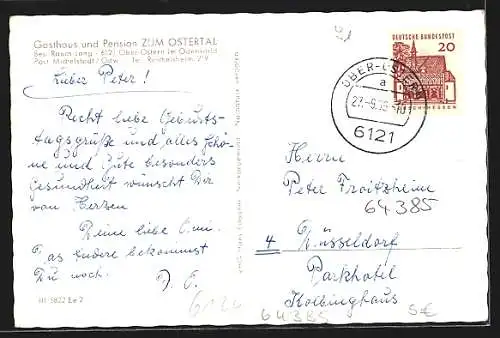 Gasthaus und Pension ZUM OSTERTAL
Bes. Raum-Lang - 6121 Ober-Ostern im Odenwald
Post Michelstadt/Odw. Te. Reichelsheim 219
Lieber Peter!
Recht liebe Geburts-
tagsgrüße und alles Schö-
ne und Gute besonders
Gesundheit wünscht Dir
von Herzen
Deine liebe Omi.
Das andere bekommst
Du noch.
III 5822 Le 2
6124
DEUTSCHE BUNDESPOST
20
OBER-OSTERN
a
6121
Herrn
Peter Froitzheim
64385
4 Düsseldorf
Parkhotel
Kolbinghaus
64385
5€